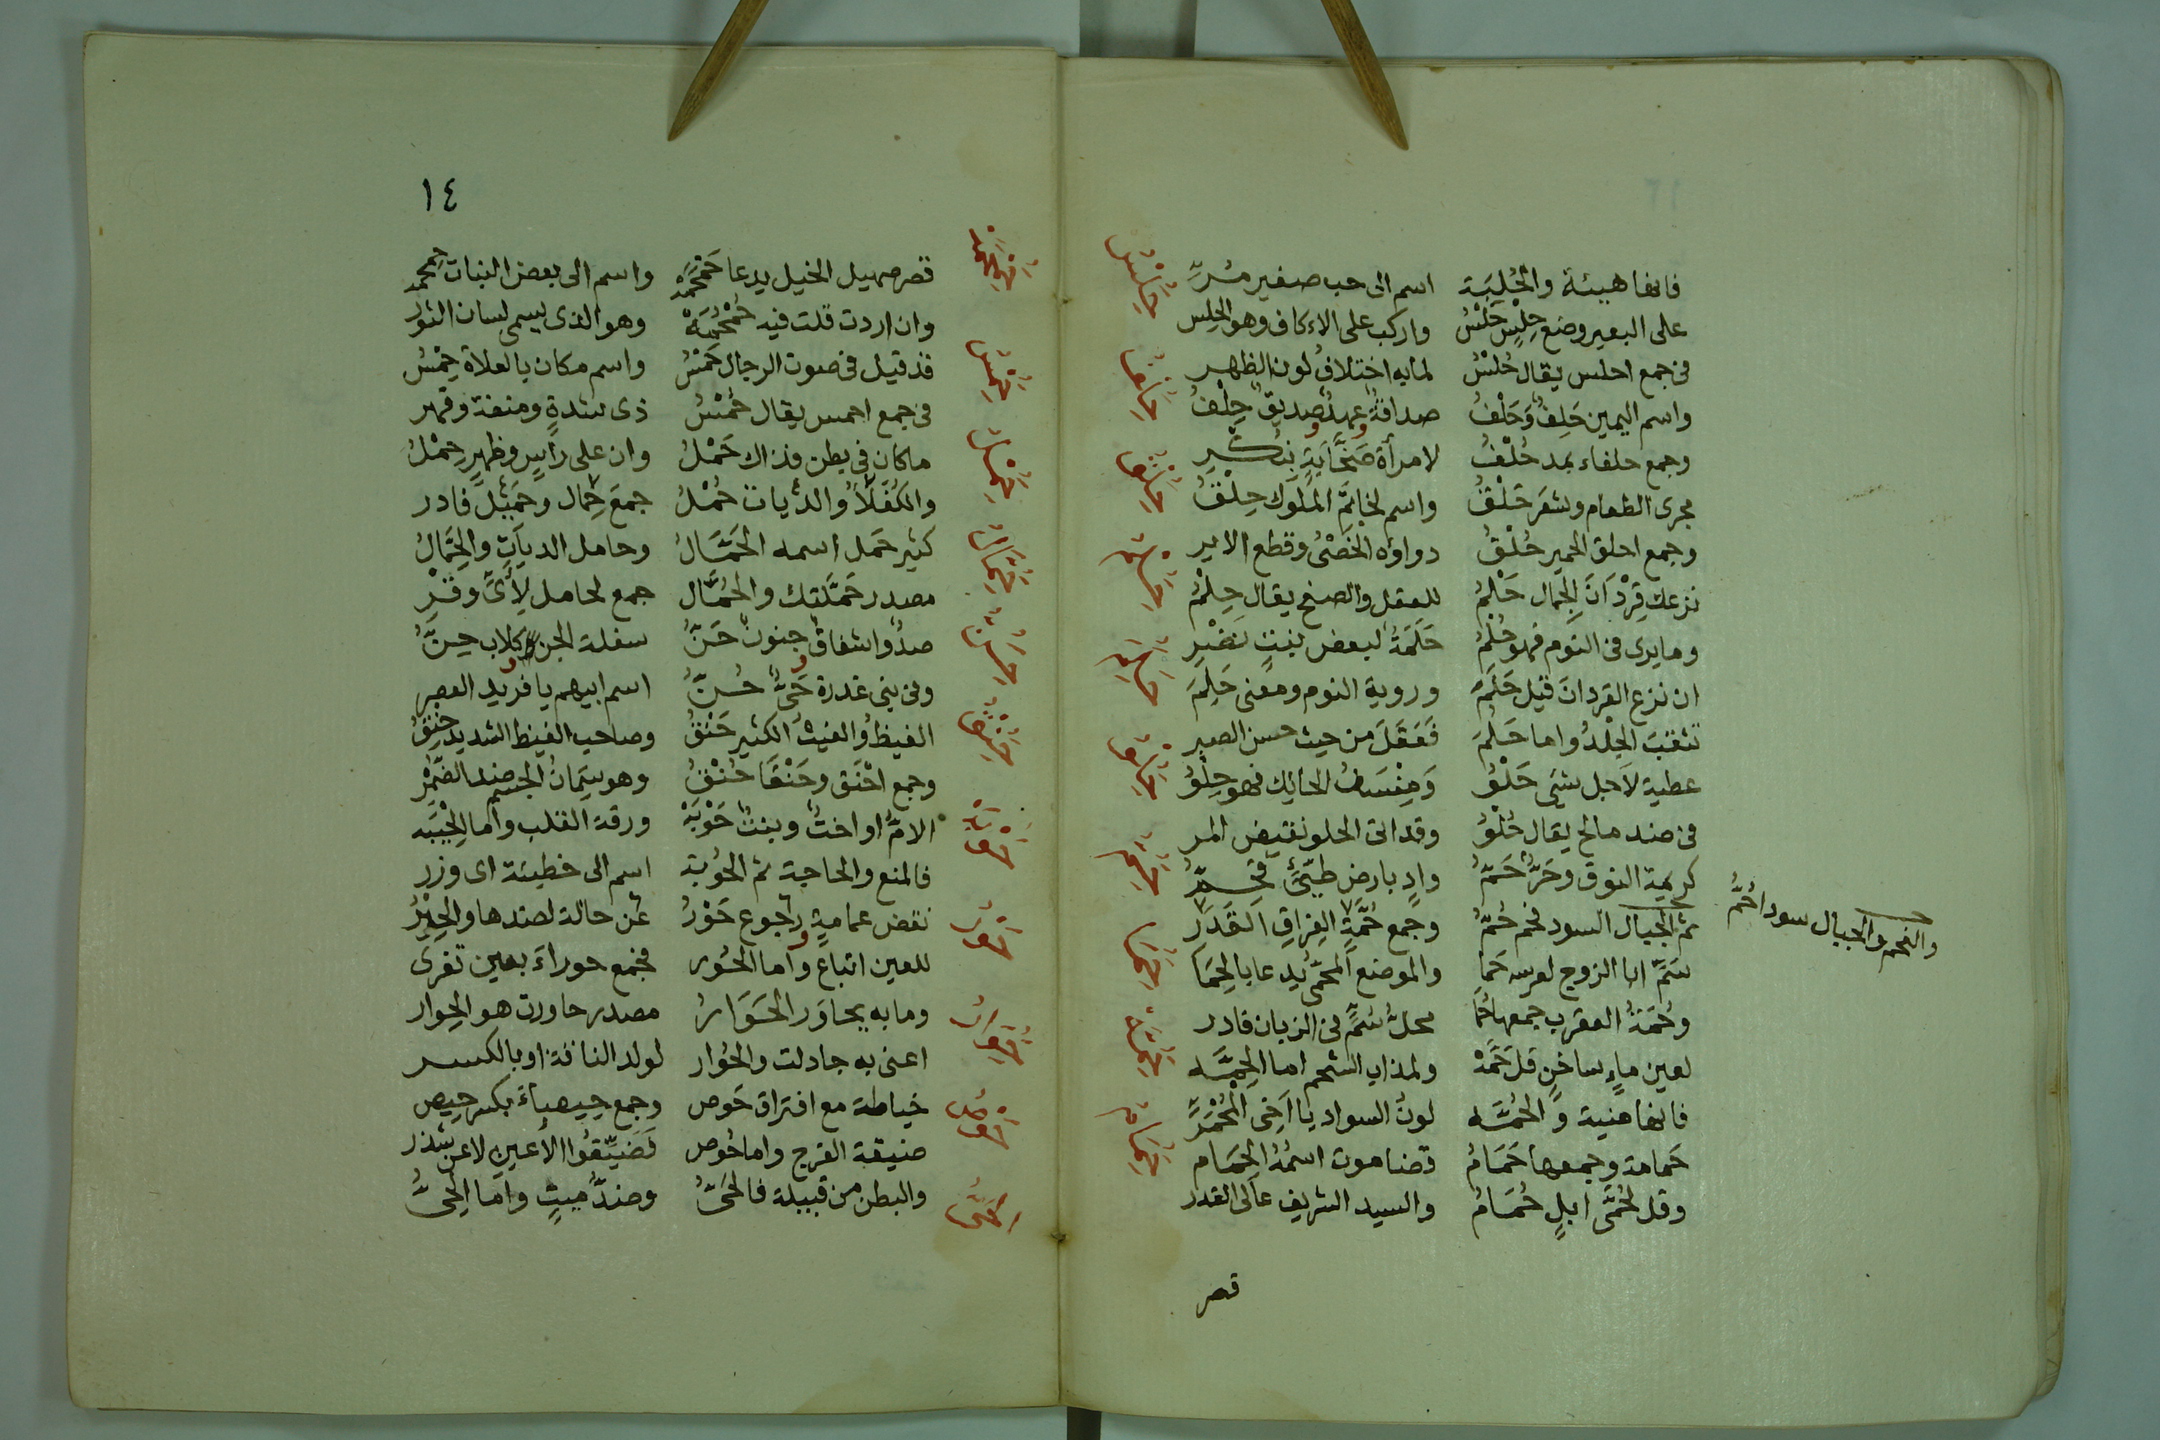 فانها هيئة والحُلِيَبة اسم الى حب صغير مُرَّ
على البعير وضع حِلْسٍ حَلْسُ واركب على الاءكاف وهو الحِلس
فى جمع احلس يقال حُلْسُ لمابه اختلافُ لون الظهر
واسم اليمين حَلِفُ وَحَلْفُ صداقةٌ عهدٌ صديقٌ حِلْفُ
وجمع حلفاء بمد حُلْفُ لامرأة صَخَّابَةٍ بِنُكْرِ
مجرى الطعام وشعَر حَلْقُ واسم لخاتم الملوك حِلْقُ
وجمع احلق الحمير حُلْقُ دواؤه الخَصْىُ وقطع الاير
نزعك قِرْدَانَ الجمال حَلْمُ للعقل والصفح يقال حِلْمُ
وما يرى فى النوم فهو حُلْمُ حَلَمَةُ لبعض نبتٍ نَضْرِ
ان نزع القردانَ قيل حَلَمَ وروية النوم ومعنى حَلِمَ
تثقبَ الجلدُ واما حَلُمَ فَعَقَلَ من حيث حسن الصبر
عطية لاجل شئى حَلْوُ وَ الحائك فهو حِلْوُ
فى ضد مالح يقال حُلْوُ وقد اتى الحلو نقيض المر
كريمة النوق وحَرٌّ حَمُّ وادٍ بارض طيّئٍ فَحِمُّ
ثم الجبال السود فحم حُمُّ وجمع حُمَّةِ الفِراقِ القَدَر
والفحم والجبال سودا حُمُّ
سَمِّ ابا الزوج لعرسه حَمَا والموضع المحمَّى يدعا بالحِمَا
وحُمَةُ العقرب جمعها حُمَا محلُّ سُمٍّ فى الزبان قادر
لعين ماءٍ ساخنٍ قل حَمَّهْ ولمذاب الشحم اما الحِمَّه
فانها منية والحُمَّه لونُ السواد يا اَخِى الْمُحْمَرِّ
حَمامة وجمعها حَمَامُ قضا موت اسمُهُ الحِمَام
وقل لحُمَّى ابلٍ حُمَامُ والسيد الشريف عالى القدر
قصر
حِلْسُ
حِلْفُ
حِلْقُ
حِلْمُ
حلمَ
حِلْوُ
حِمُّ
حِمَا
حِمَّه
حِمَامُ
١٤
قصر صهيل الخيل يدعا حَمْحَمَهْ واسم الى بعض النبات حِمحمه
وان اردت قلت فيه حُمْحُمَهْ وهو الذى يسمى لسان الثور
قد قيل فى صوت الرجال حَمْسُ واسم مكان بالعلاة حِمْسُ
فى جمع احمس يقال حُمْسُ ذى شدةٍ ومنعة وقهر
ماكان فى بطن فذاك حَمْلُ وان على رأسٍ وظهرٍ حِمْلُ
والكُفَلَاءُ والديات حُمْلُ جمعَ حِمال وحَمِيْلَ قادر
كثير حَمل اسمه الحَمَّالُ وحامل الدياتِ والحِمَّالُ
مصدر حَمَّلتك والحُمَّال جمع لحامل لِأَىِّ وِقْرِ
صدٌّ واشفاقٌ جنونٌ حَنُّ سفلة الجن كلاب حِنُّ
وفى بنى عذرة حَىٌّ حُنُّ اسم ابيهم يا فريد العصر
الغيظُ والغيثُ الكثير حَنْقُ وصاحب الغيظ الشديد حِنْقُ
وجمع احْنَق وحَنْقَا حُنْقُ وهو سِمَانُ الجسم ضد الضُّمْرِ
الامُّ او اختٌ وبنتٌ حَوْبَهْ ورقة القلب واما الحِيْبَه
فالمنع والحاجة ثم الحُوبة اسم الى خطيئة اى وزر
نقض عمامةٍ رجوع حَوْرُ عن حالة لضدها والحِيْرُ
للعين اتباع واما الحُور فجمع حوراءَ بعين تفرى
ومابه يحاوَر الحَوَارُ مصدر حاورت هو الحِوار
اعنى به جادلت والحُوار لولد الناقة او بالكسر
خياطة مع افتراق حَوص وجمع حِيصاءَ بكسر حِيص
ضيقة الفرج واما حُوص فَضَيِّقُوا الأعينِ لاعن شذر
والبطن من قبيلة فالحَىُّ وضدُّ ميتٍ واما الحِىُّ
حِمْحِمَهْ
حِمْسُ
حِمْلُ
حِمَّالُ
حِنُّ
حِنْقُ
حَوْبَهْ
حَوْرُ
حِوَارُ
حَوْصُ
الحَىُّ